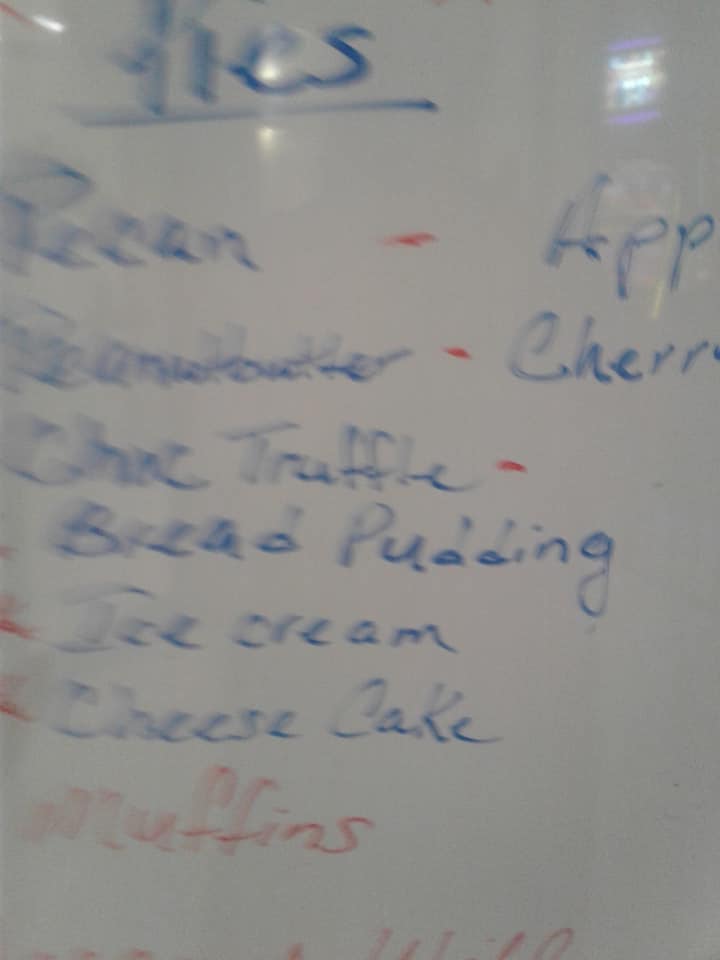 Pies
Pecan - App
Peanutbutter - Cherry
Choc Truffle -
Bread Pudding
Ice cream
Cheese Cake
Muffins